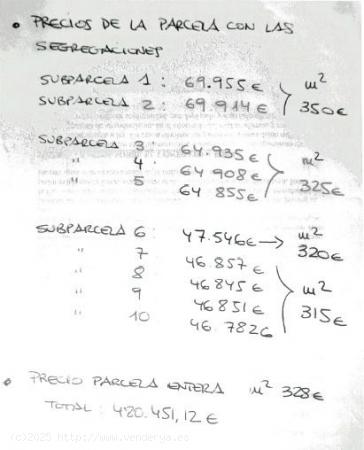 • PRECIOS DE LA PARCELA CON LAS
SEGREGACIONES
SUBPARCELA 1 : 69.955€
SUBPARCELA 2 : 69.914€
m²
350€
SUBPARCELA 3 : 64.935€
" 4 64 908€
" 5 64 855€
m²
325€
SUBPARCELA 6 : 47.546€ → m²
320€
" 7 46.857€
" 8 46845€
" 9 46851€
" 10 46.782€
m²
315€
• PRECIO PARCELA ENTERA m² 328€
TOTAL : 480.451,12 €
(c)2025 https://www.venderya.es